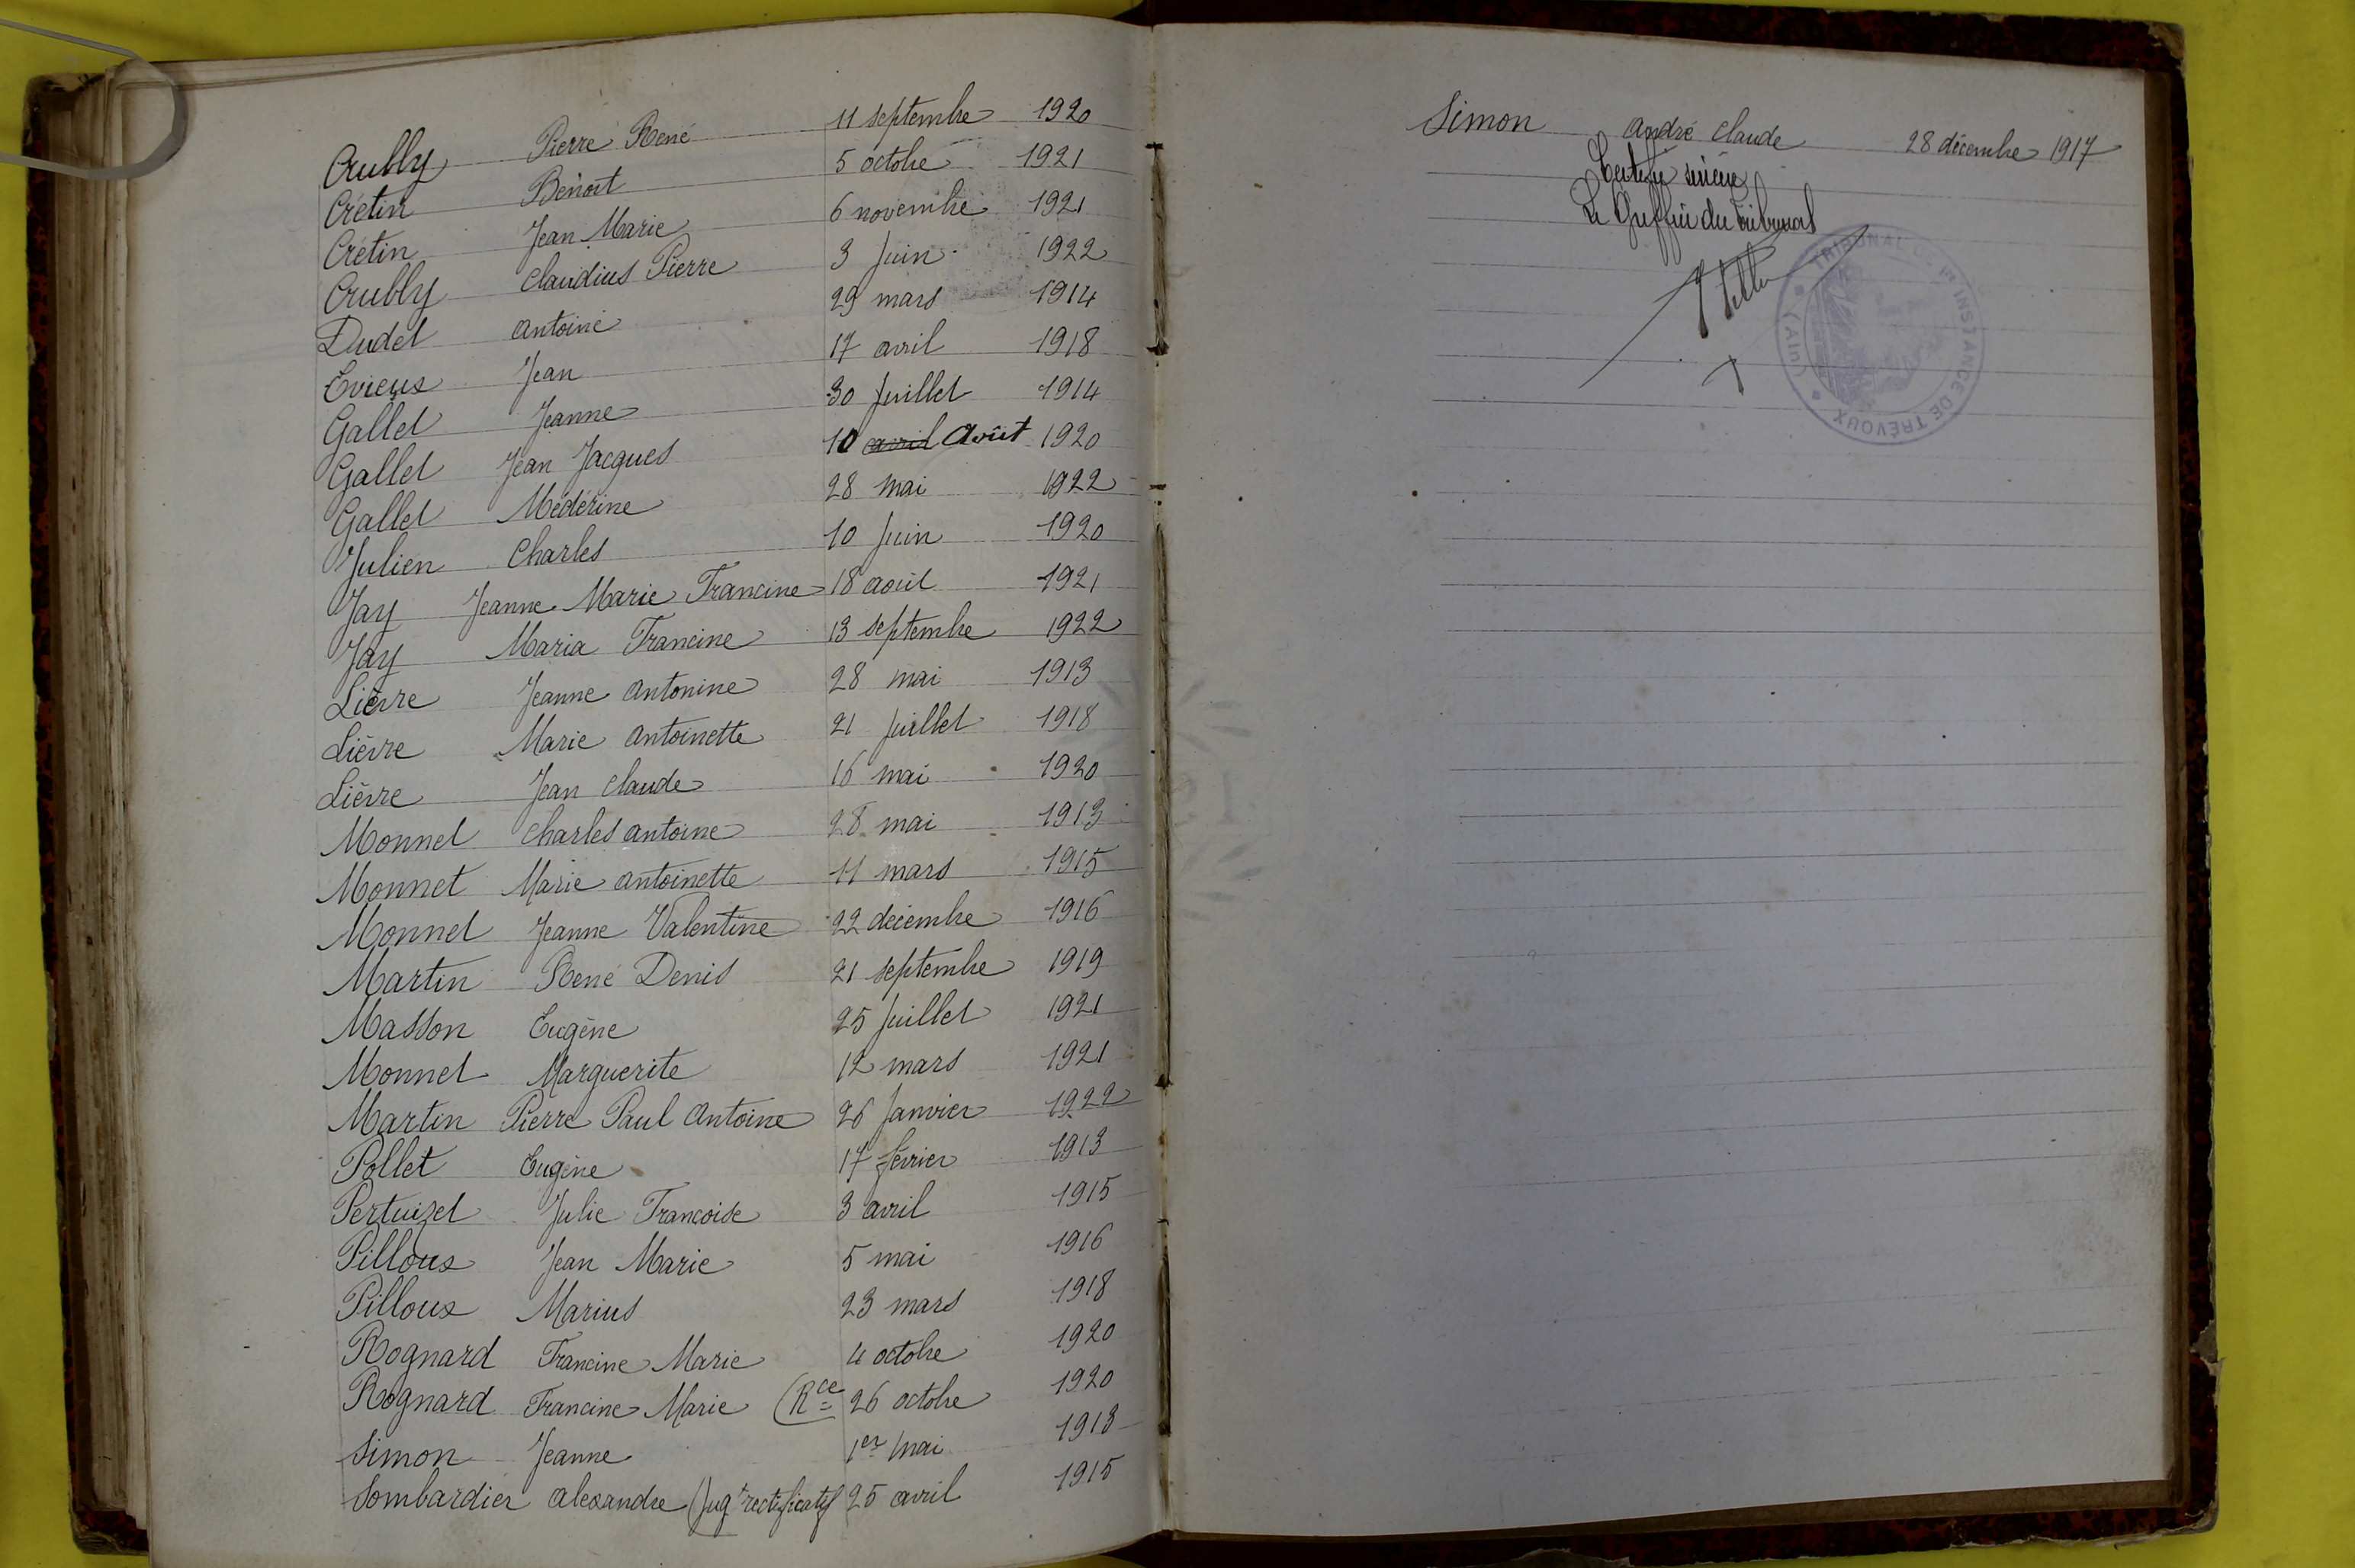 Crubly Pierre René 11 septembre 1920
Crétin Benoît 5 octobre 1921
Crétin Jean Marie 6 novembre 1921
Crubly Claudius Pierre 3 Juin 1922
Dudet Antoine 29 mars 1914
Evieux Jean 17 avril 1918
Gallet Jeanne 30 Juillet 1914
Gallet Jean Jacques 10 avril Août 1920
Gallet Médérine 28 mai 1922
Julien Charles 10 Juin 1920
Jay Jeanne Marie Francine 18 août 1921
Jay Maria Francine 13 septembre 1922
Lièvre Jeanne Antonine 28 mai 1913
Lièvre Marie Antoinette 21 Juillet 1918
Lièvre Jean Claude 16 mai 1920
Monnet Charles Antoine 28 mai 1913
Monnet Marie Antoinette 11 mars 1915
Monnet Jeanne Valentine 22 décembre 1916
Martin René Denis 21 septembre 1919
Masson Eugène 25 Juillet 1921
Monnet Marguerite 12 mars 1921
Martin Pierre Paul Antoine 26 Janvier 1922
Pollet Eugène 17 février 1913
Pertuizet Julie Francoise 3 avril 1915
Pilloux Jean Marie 5 mai 1916
Pilloux Marius 23 mars 1918
Rognard Francine Marie 4 octobre 1920
Rognard Francine Marie (Rce 26 octobre 1920
Simon Jeanne 1er Mai 1913
Sombardier Alexandre (Jugt rectificatif 25 avril 1915
Simon André Claude 28 décembre 1917
Le Greffier du tribunal
TRIBUNAL DE 1re INSTANCE DE TRÉVOUX (Ain)